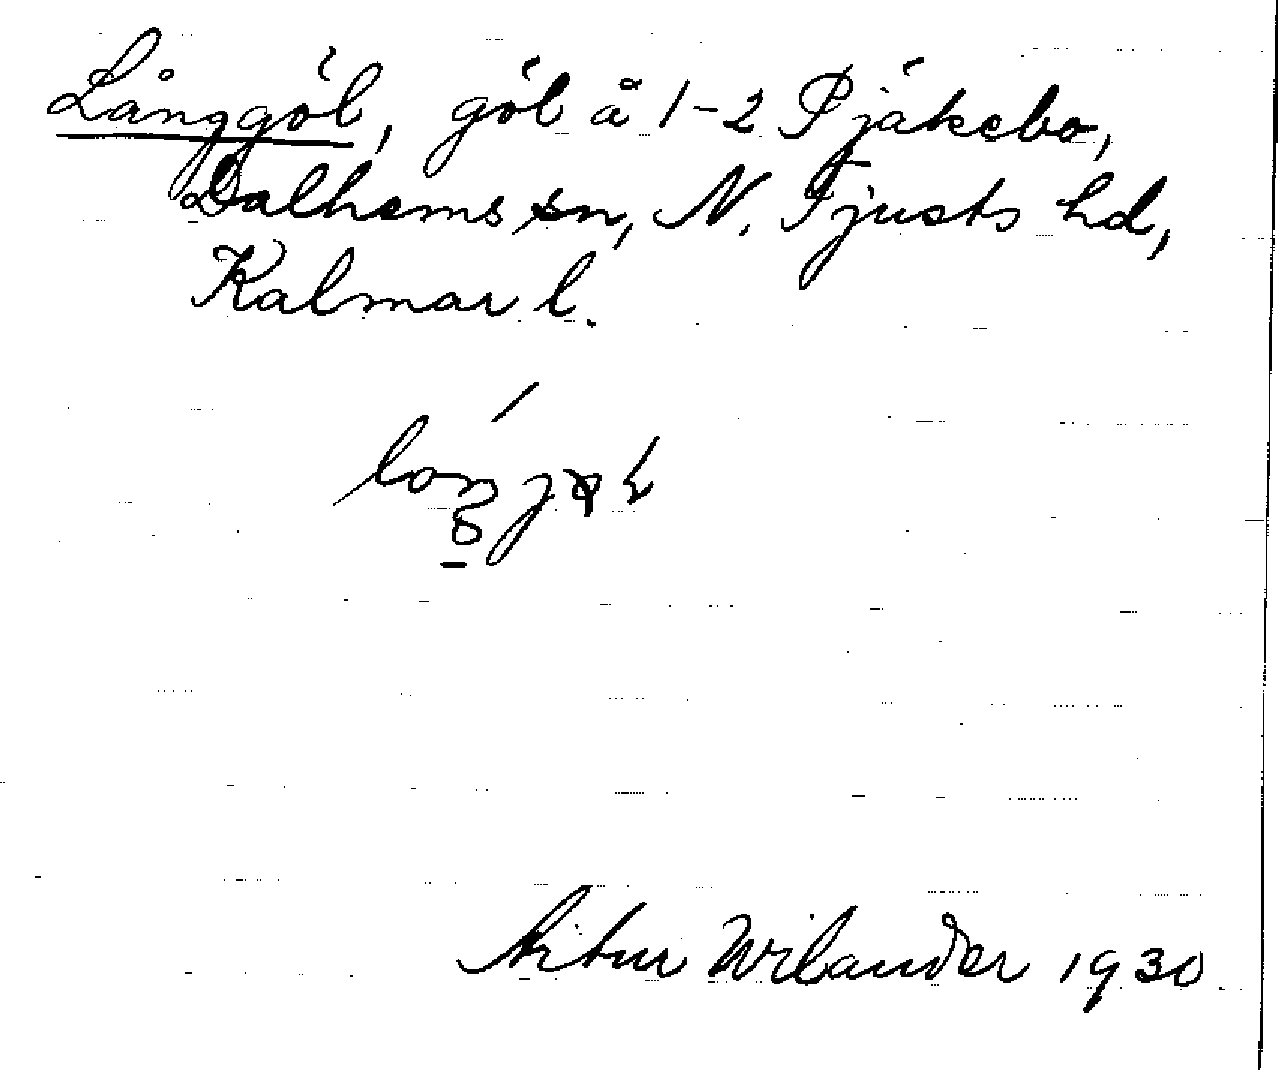 Långgöl, göl å 1-2 Tjäkebo,
Dalhems sn, N. Tjusts hd,
Kalmar l.
Artur Wilander 1930